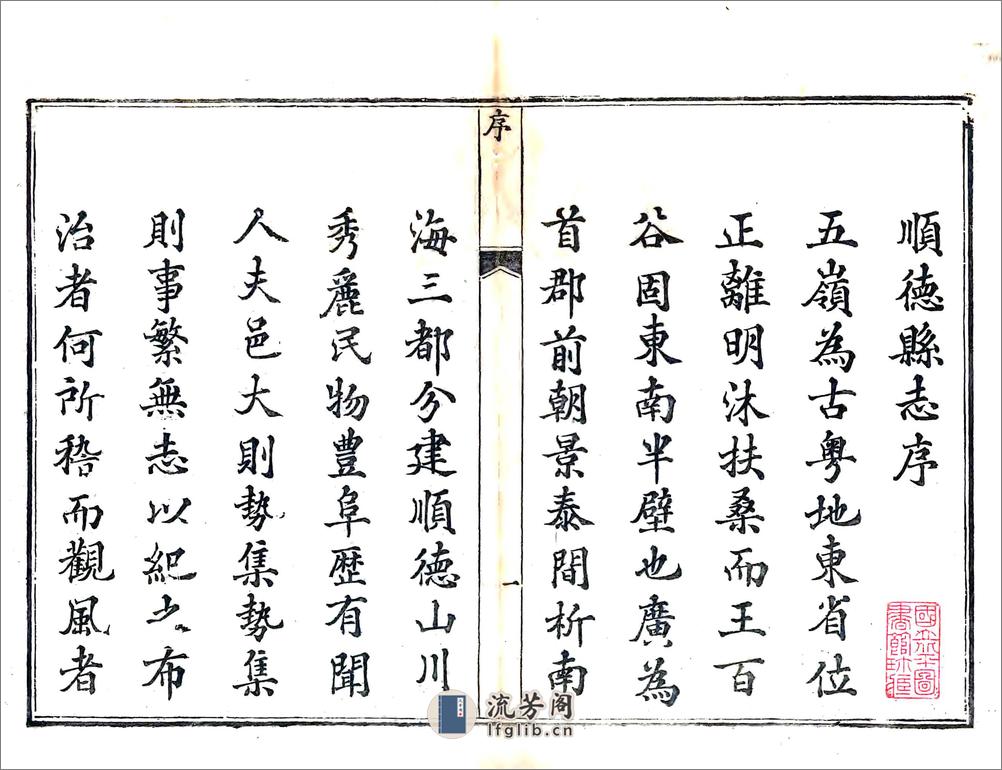 順德縣志序
五嶺為古粵地東省位
正離明沐扶桑而王百
谷固東南半壁也廣為
首郡前朝景泰間析南
序
一
海三都分建順德山川
秀麗民物豊阜歷有聞
人夫邑大則勢集勢集
則事繁無志以紀之布
治者何所稽而觀風者
國立北平圖
書館
流芳阁
lfglib.cn